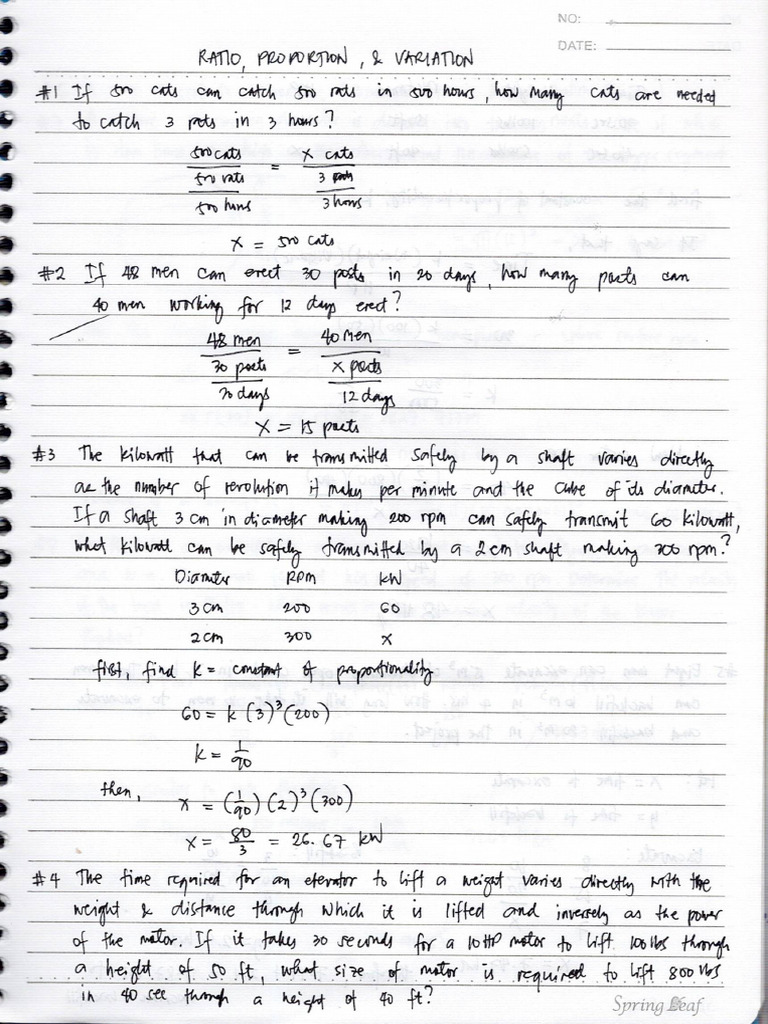 NO:
DATE:
RATIO, PROPORTION, & VARIATION
#1 If 500 cats can catch 500 rats in 500 hours, how many cats are needed
to catch 3 rats in 3 hours?
500 cats = X cats
500 rats 3 rats
500 hours 3 hours
X = 500 cats
#2 If 48 men can erect 30 posts in 20 days, how many posts can
40 men working for 12 days erect?
48 men = 40 men
30 posts X posts
20 days 12 days
X = 15 posts
#3 The kilowatt that can be transmitted safely by a shaft varies directly
as the number of revolution it makes per minute and the cube of its diameter.
If a shaft 3 cm in diameter making 200 rpm can safely transmit 60 kilowatt,
what kilowatt can be safely transmitted by a 2 cm shaft making 300 rpm?
Diameter RPM kW
3 cm 200 60
2 cm 300 x
first, find k = constant of proportionality
60 = k (3)³(200)
k = 1/90
then,
x = (1/90)(2)³(300)
x = 80/3 = 26.67 kW
#4 The time required for an elevator to lift a weight varies directly with the
weight & distance through which it is lifted and inversely as the power
of the motor. If it takes 30 seconds for a 10 HP motor to lift 100 lbs through
a height of 50 ft, what size of motor is required to lift 800 lbs
in 40 sec through a height of 40 ft?
Spring Leaf